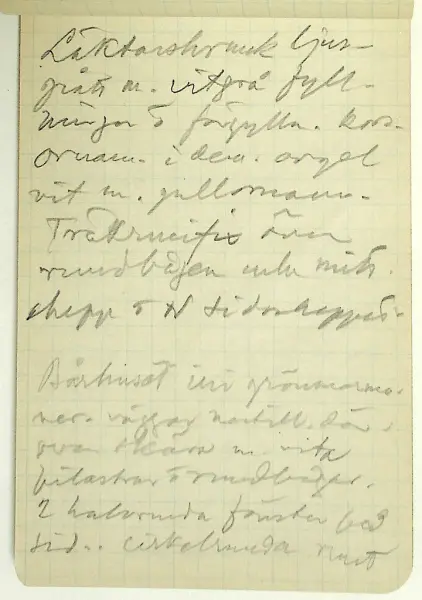 Läktarskrank ljus-
grått m. vitgrå fyll-
ningar o förgylln. kors-
ornam. i dem. orgel
vit m. gullornam-
Träkrucifix över
rundbågen mitt
skepp o N sidoskeppet.
Bårhuset i grönmarmo-
väggar nertill. där-
ovan m. vita
pilastrar o rundbågar.
2 halvrunda fönster på
sid.. cirkelrunda